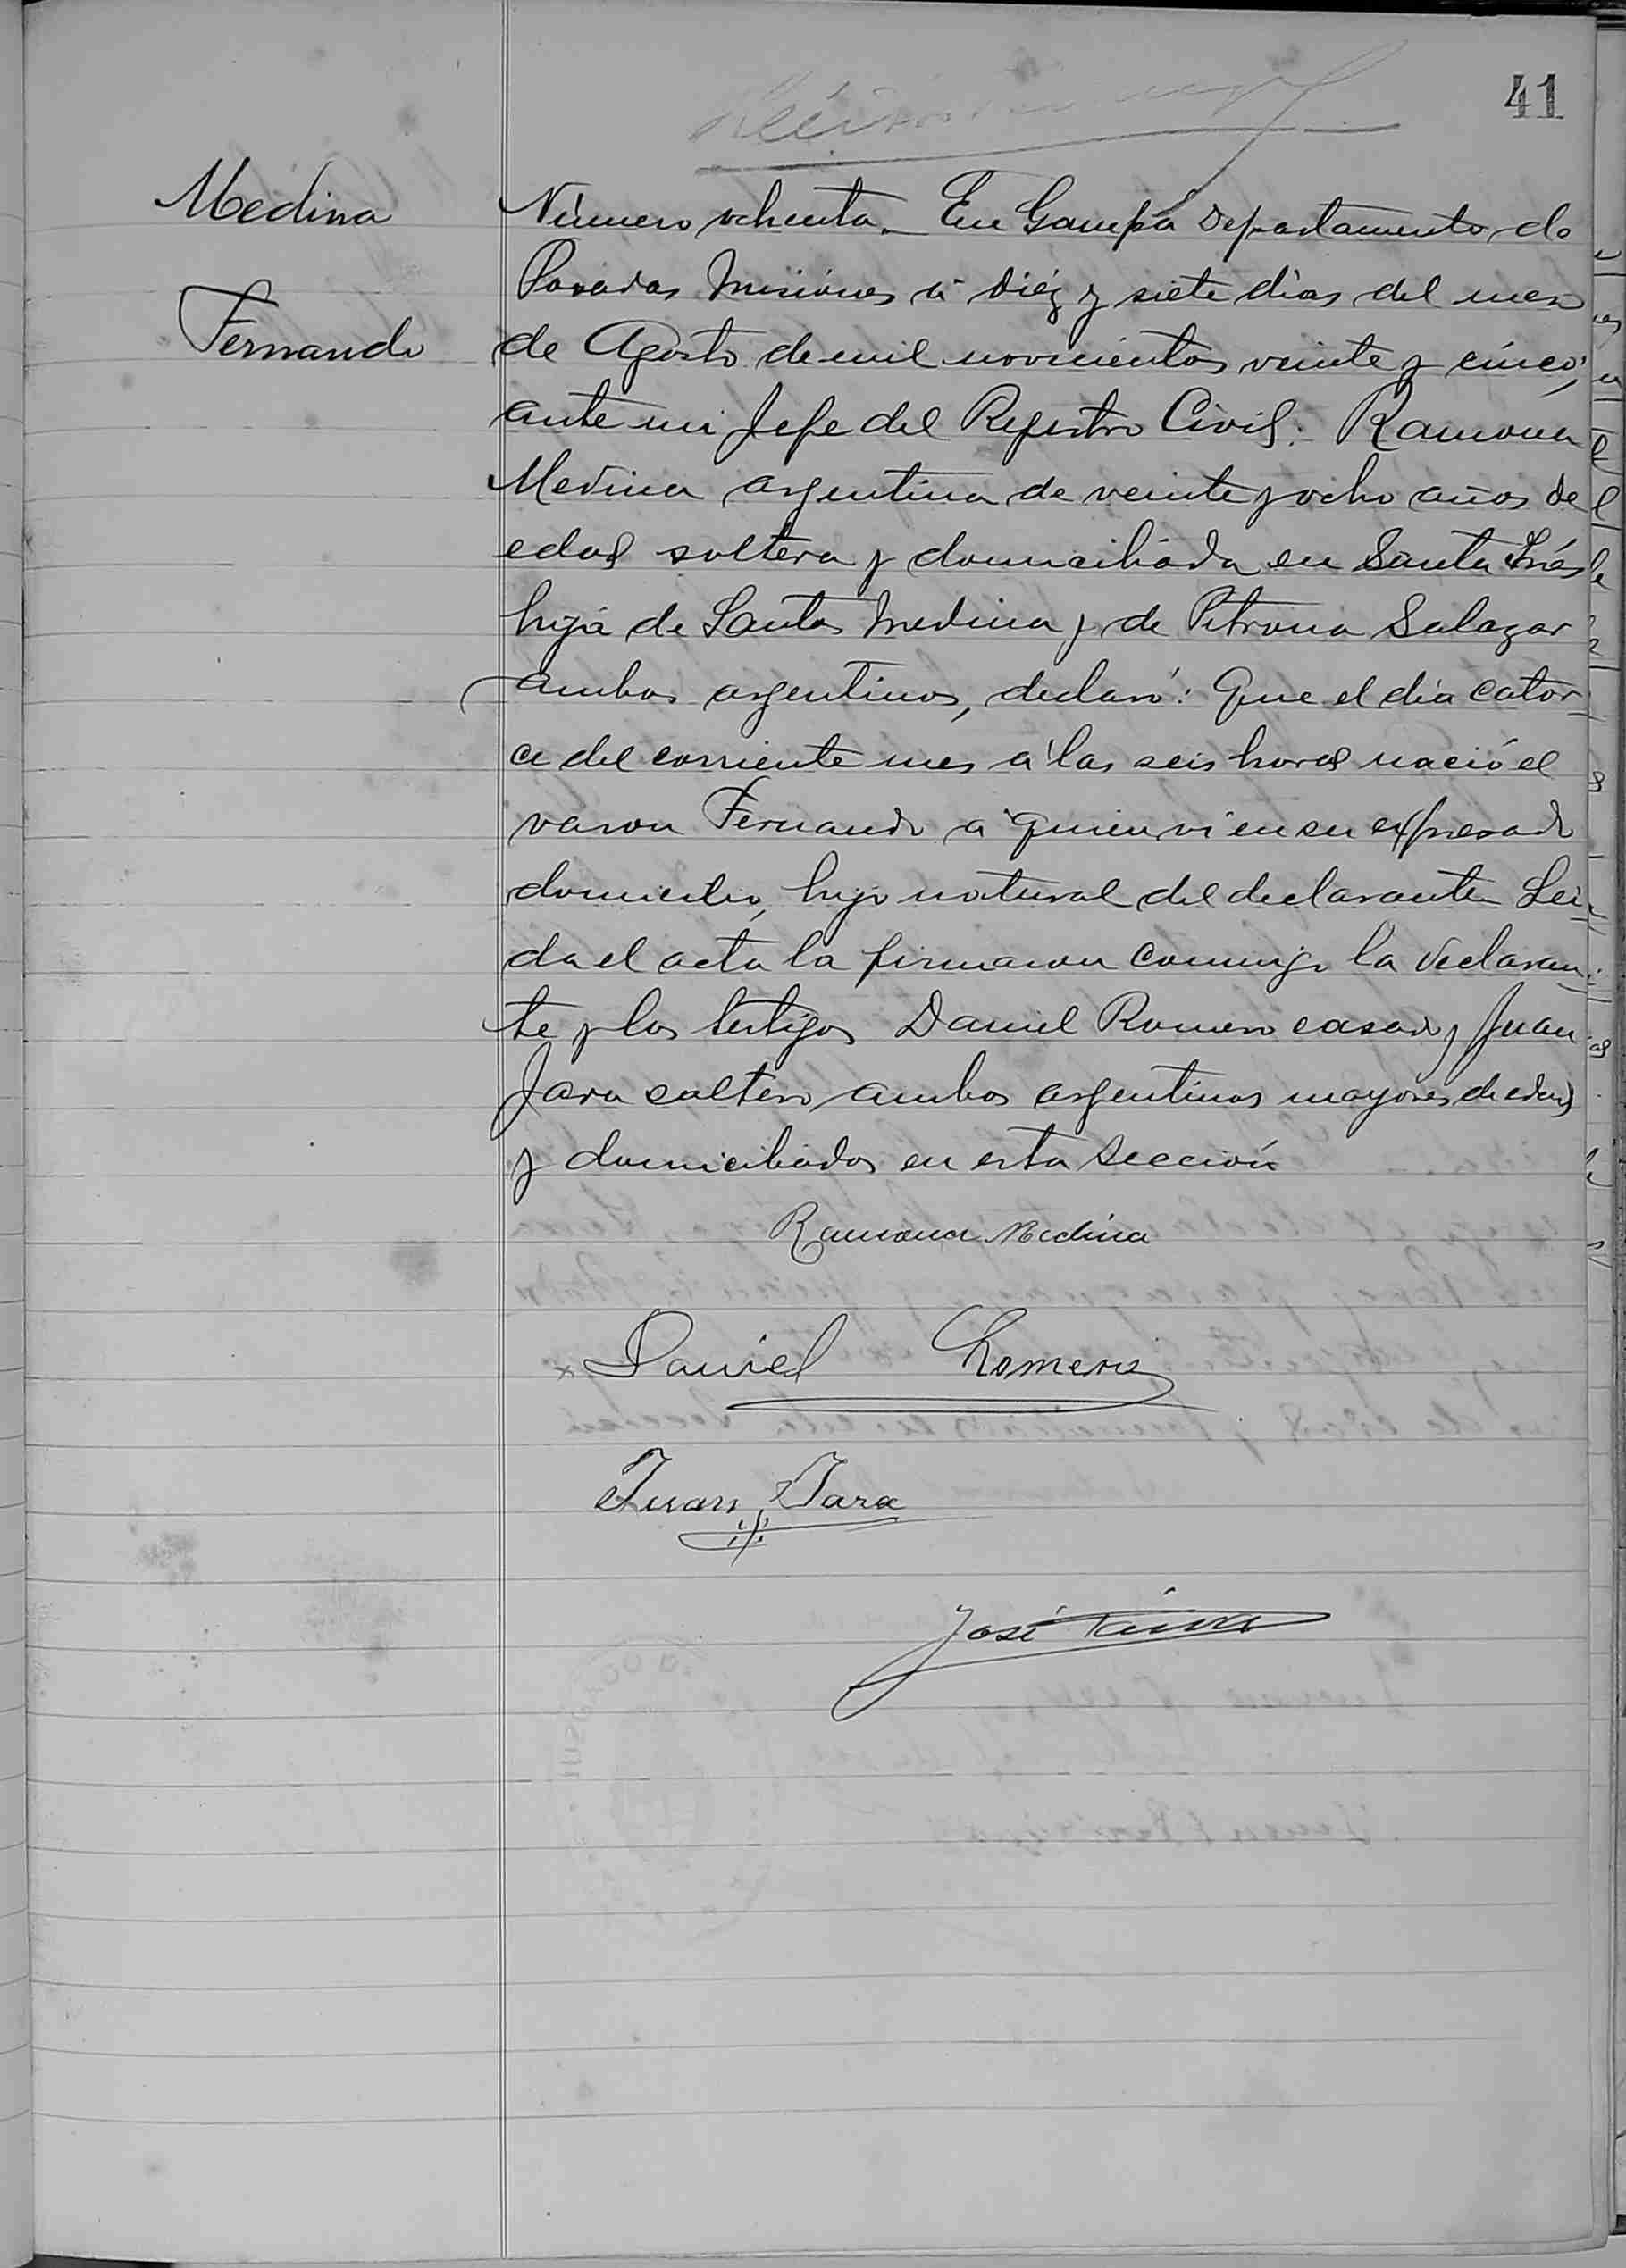 41
Medina
Fernando
Número ochenta. En Garupá Departamento de
Posadas Misiones á diéz y siete dias del mes
de Agosto de mil novecientos veinte y cinco,
ante mi Jefe del Registro Civil: Ramona
Medina argentina de veinte y ocho años de
edad soltera y domiciliada en Santa Inés
hija de Santos Medina y de Petrona Salazar
ambos argentinos, declaró: Que el dia cator-
ce del corriente mes a las seis horas nació el
varon Fernando a quien vi en su expresado
domicilio, hijo natural del declarante. Lei-
da el acta la firmaron conmigo la declaran-
te y los testigos Daniel Romero casado y Juan
Jara soltero ambos argentinos mayores de edad
y domiciliados en esta Sección
Ramona Medina
Daniel Romero
Juan Jara
José